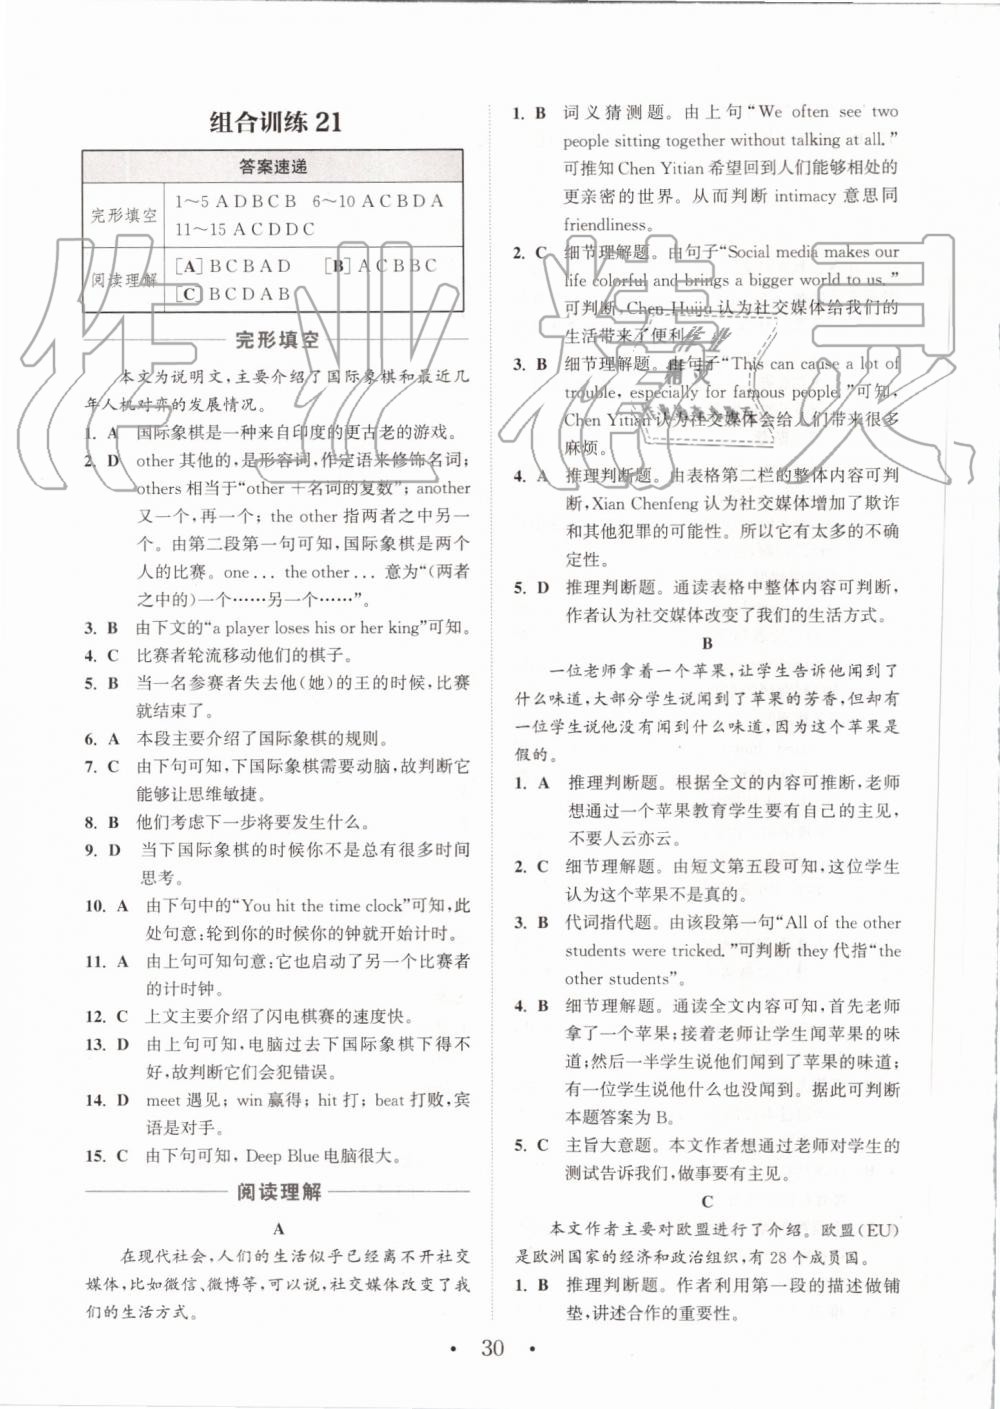 组合训练 21
答案速递
完形填空
1～5 A D B C B 6～10 A C B D A
11～15 A C D D C
阅读理解
[A] B C B A D [B] A C B B C
[C] B C D A B
完形填空
本文为说明文,主要介绍了国际象棋和最近几
年人机对弈的发展情况。
1. A 国际象棋是一种来自印度的更古老的游戏。
2. D other 其他的,是形容词,作定语来修饰名词;
others 相当于“other＋名词的复数”; another
又一个,再一个; the other 指两者之中另一
个。由第二段第一句可知,国际象棋是两个
人的比赛。one... the other... 意为“(两者
之中的)一个……另一个……”。
3. B 由下文的“a player loses his or her king”可知。
4. C 比赛者轮流移动他们的棋子。
5. B 当一名参赛者失去他(她)的王的时候,比赛
就结束了。
6. A 本段主要介绍了国际象棋的规则。
7. C 由下句可知,下国际象棋需要动脑,故判断它
能够让思维敏捷。
8. B 他们考虑下一步将要发生什么。
9. D 当下国际象棋的时候你不是总有很多时间
思考。
10. A 由下句中的“You hit the time clock”可知,此
处句意:轮到你的时候你的钟就开始计时。
11. A 由上句可知句意:它也启动了另一个比赛者
的计时钟。
12. C 上文主要介绍了闪电棋赛的速度快。
13. D 由上句可知,电脑过去下国际象棋下得不
好,故判断它们会犯错误。
14. D meet 遇见; win 赢得; hit 打; beat 打败,宾
语是对手。
15. C 由下句可知,Deep Blue 电脑很大。
阅读理解
A
在现代社会,人们的生活似乎已经离不开社交
媒体,比如微信、微博等,可以说,社交媒体改变了我
们的生活方式。
1. B 词义猜测题。由上句“We often see two
people sitting together without talking at all.”
可推知 Chen Yitian 希望回到人们能够相处的
更亲密的世界。从而判断 intimacy 意思同
friendliness。
2. C 细节理解题。由句子“Social media makes our
life colorful and brings a bigger world to us.”
可判断,Chen Huiju 认为社交媒体给我们的
生活带来了便利。
3. B 细节理解题。由句子“This can cause a lot of
trouble, especially for famous people.”可知,
Chen Yitian 认为社交媒体会给人们带来很多
麻烦。
4. A 推理判断题。由表格第二栏的整体内容可
判断,Xian Chenfeng 认为社交媒体增加了欺诈
和其他犯罪的可能性。所以它有太多的不确
定性。
5. D 推理判断题。通读表格中整体内容可判断,
作者认为社交媒体改变了我们的生活方式。
B
一位老师拿着一个苹果,让学生告诉他闻到了
什么味道,大部分学生说闻到了苹果的芳香,但却有
一位学生说他没有闻到什么味道,因为这个苹果是
假的。
1. A 推理判断题。根据全文的内容可推断,老师
想通过一个苹果教育学生要有自己的主见,
不要人云亦云。
2. C 细节理解题。由短文第五段可知,这位学生
认为这个苹果不是真的。
3. B 代词指代题。由该段第一句“All of the other
students were tricked.”可判断 they 代指“the
other students”。
4. B 细节理解题。通读全文内容可知,首先老师
拿了一个苹果;接着老师让学生闻苹果的味
道;然后一半学生说他们闻到苹果的味道;
有一位学生说他什么也没闻到。据此可判断
本题答案为 B。
5. C 主旨大意题。本文作者想通过老师对学生的
测试告诉我们,做事要有主见。
C
本文作者主要对欧盟进行了介绍。欧盟(EU)
是欧洲国家的经济和政治组织,有 28 个成员国。
1. B 推理判断题。作者利用第一段的描述做铺
垫,讲述合作的重要性。
• 30 •
作业精灵